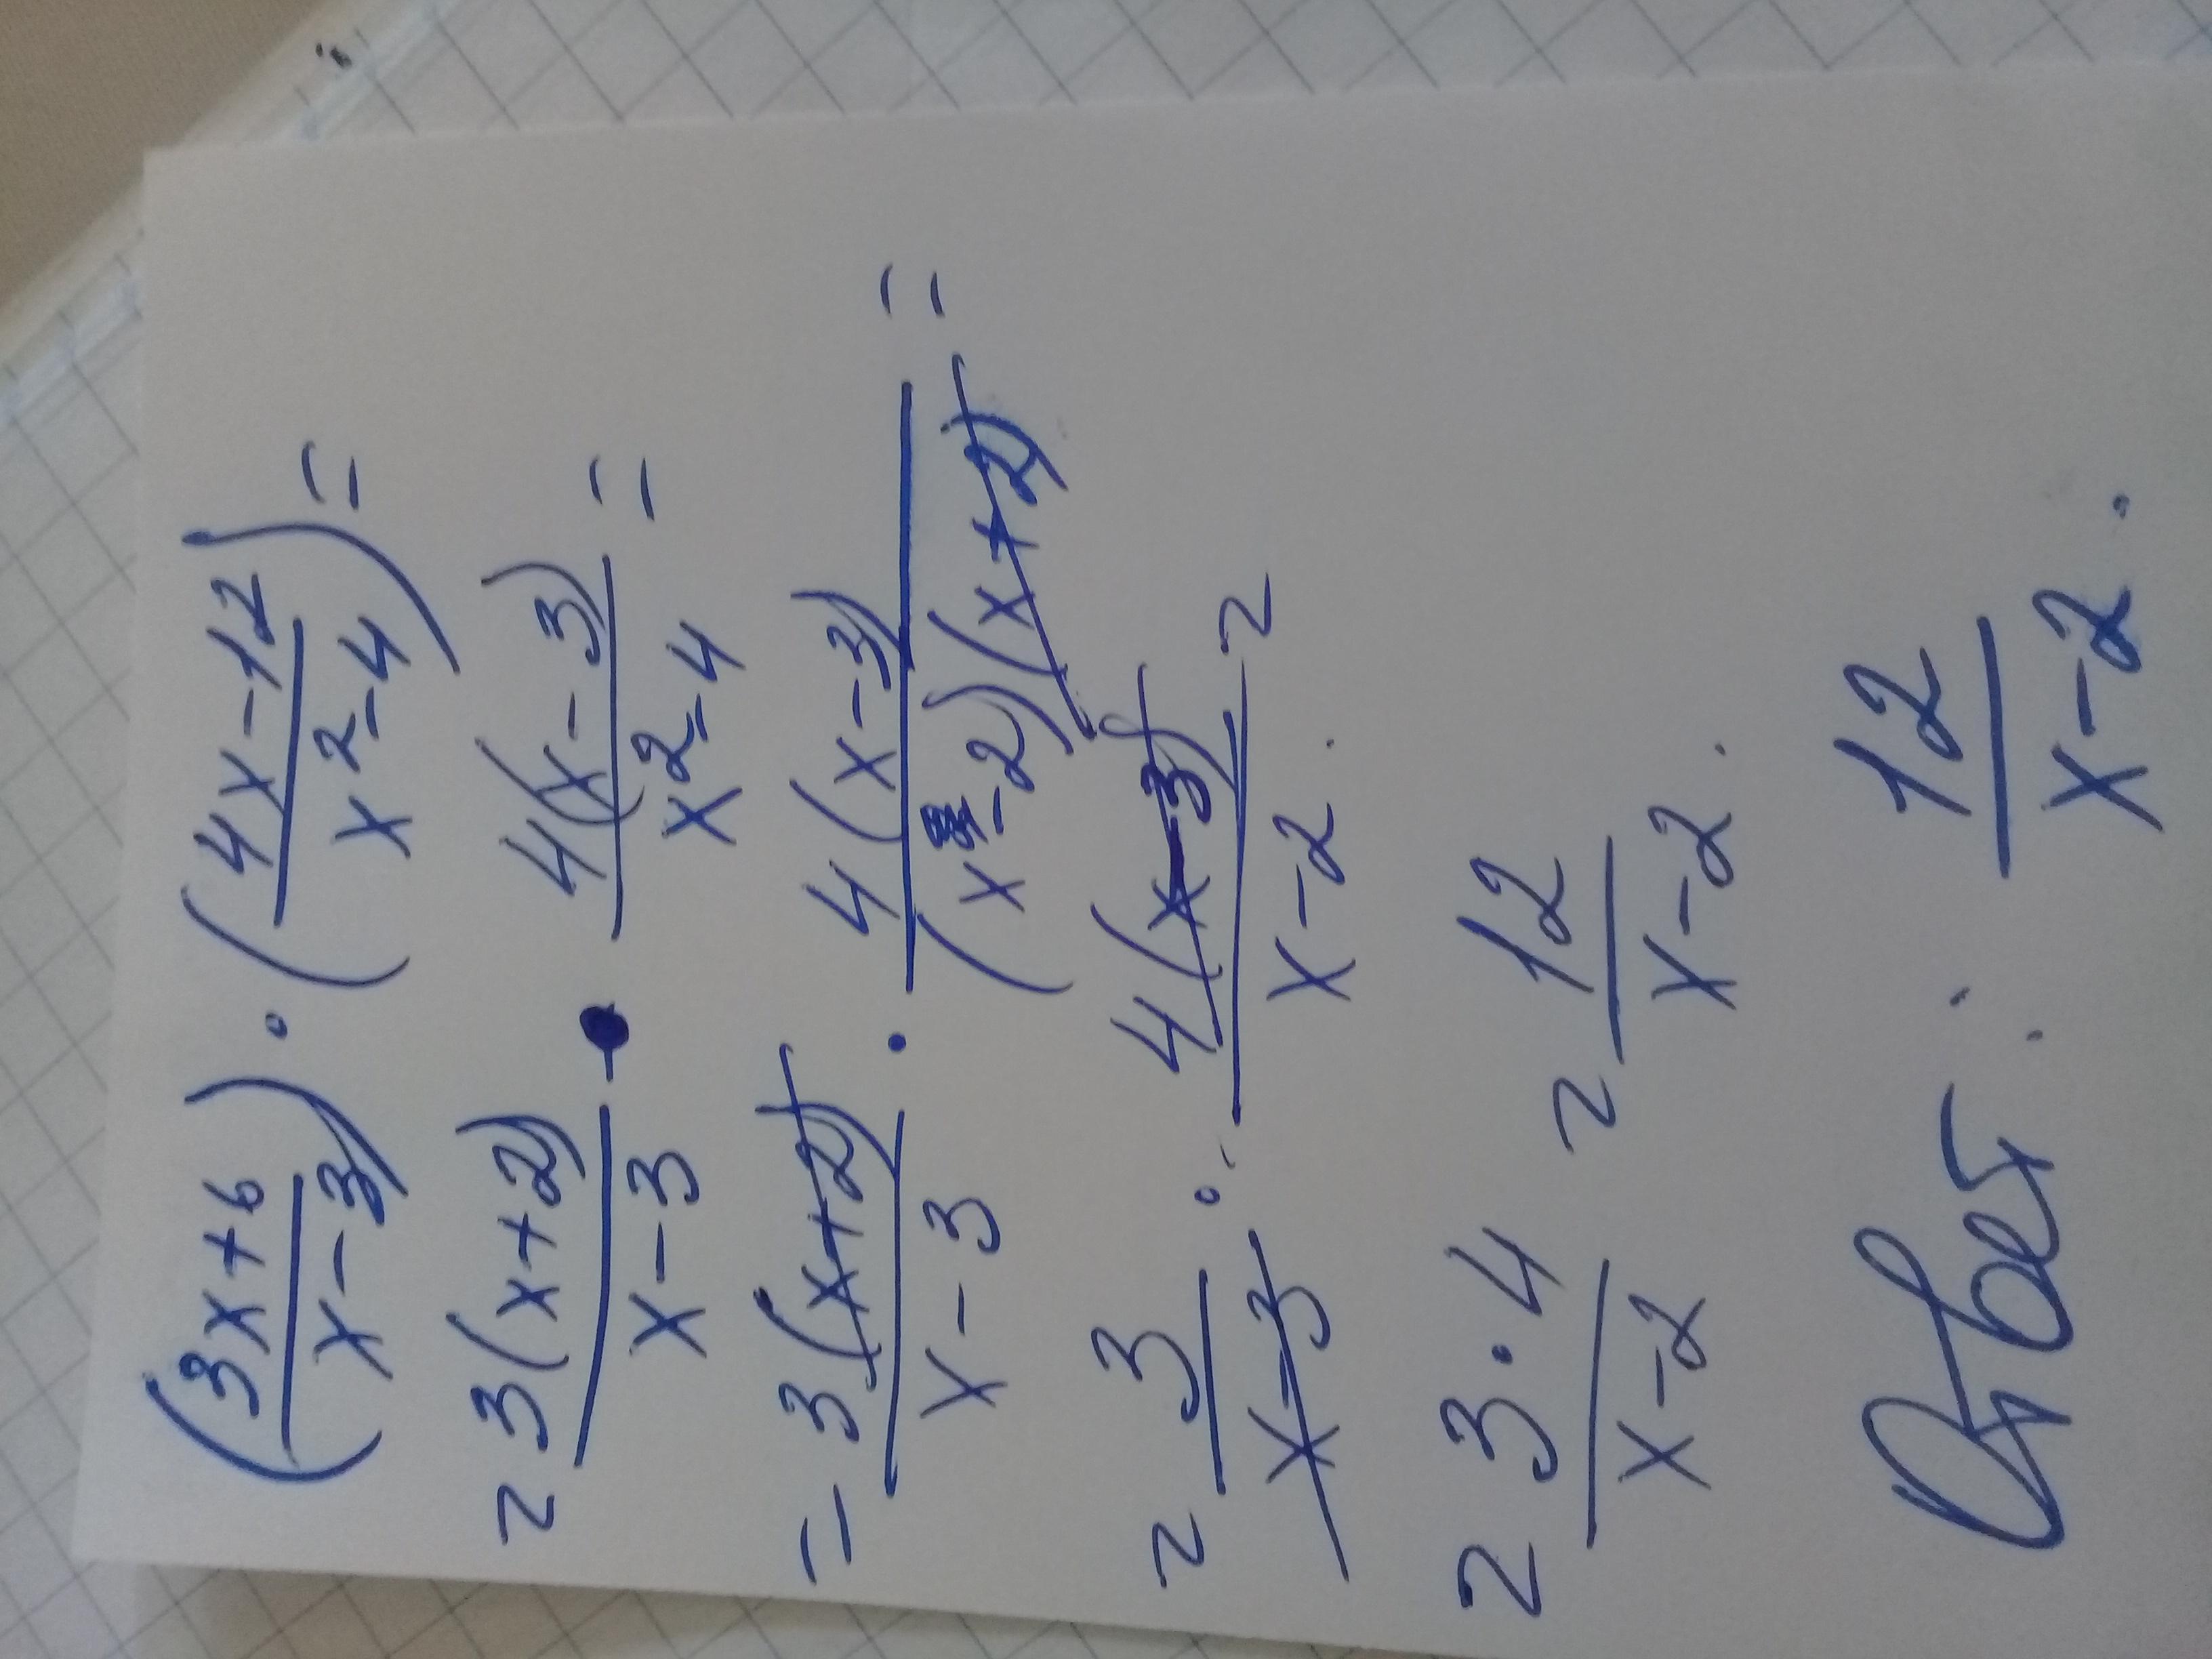 (3x+6)/(x-3) · (4x-12)/(x²-4) =
= 3(x+2)/(x-3) · 4(x-3)/(x²-4) =
= 3(x+2)/(x-3) · 4(x-3)/((x-2)(x+2)) =
= 3/(x-3) · 4(x-3)/(x-2) =
= 3·4/(x-2) = 12/(x-2).
Ответ: 12/(x-2).